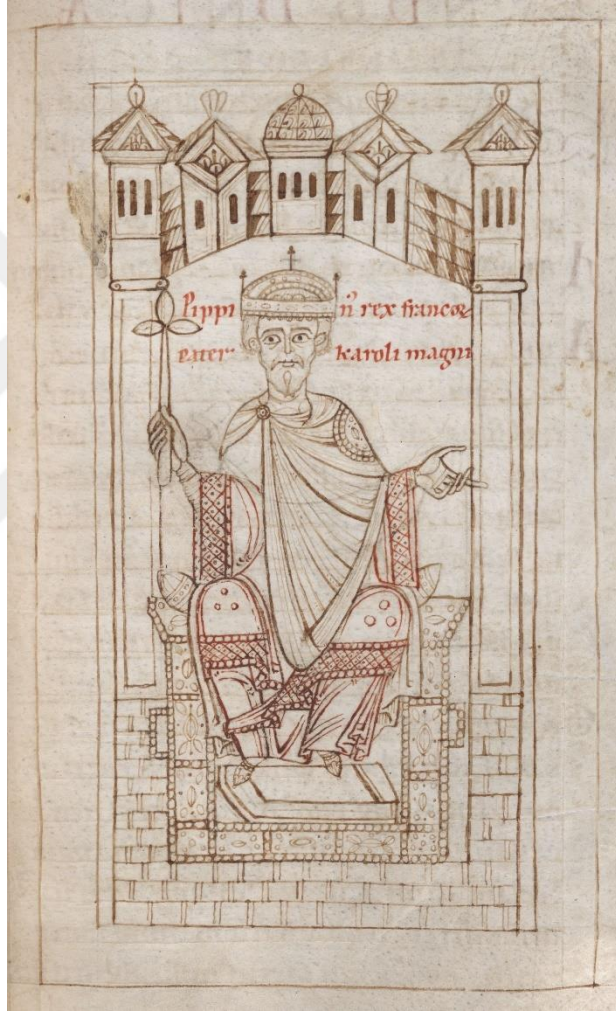 Pippi n̄ rex francoꝝ
pater karoli magni